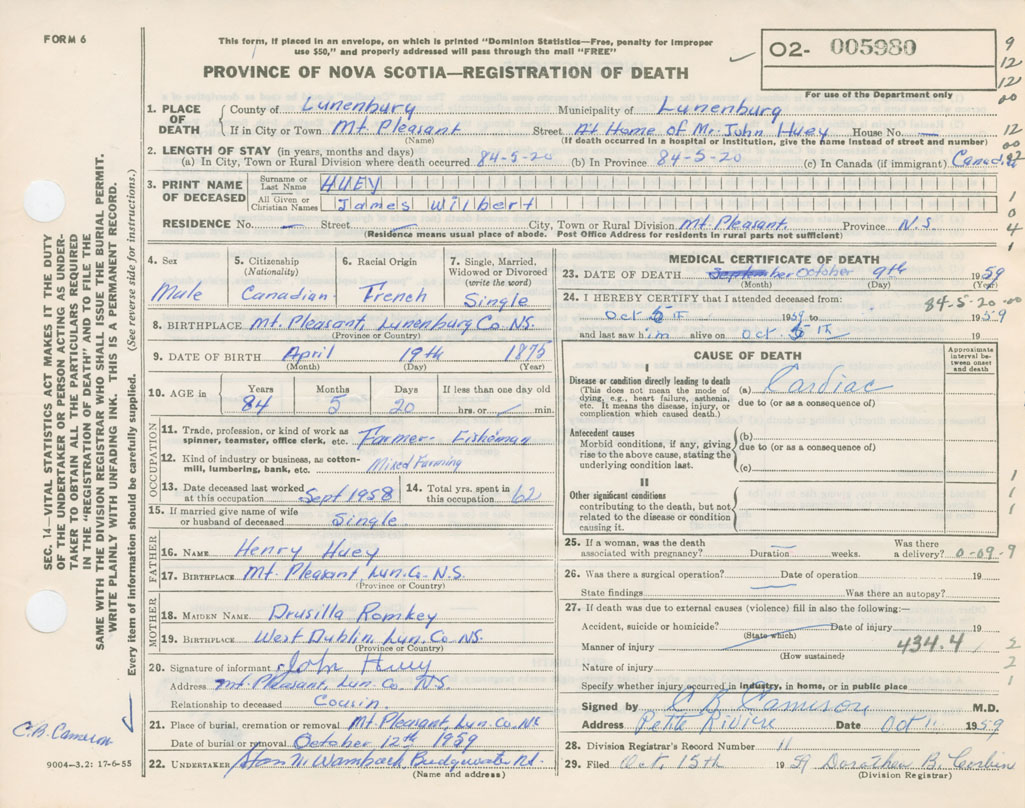 FORM 6
This form, if placed in an envelope, on which is printed "Dominion Statistics—Free, penalty for improper
use $50," and properly addressed will pass through the mail "FREE"
PROVINCE OF NOVA SCOTIA—REGISTRATION OF DEATH
O2- 005980
For use of the Department only
9
12
12
00
12
00
02
1
0
4
1
SEC. 14—VITAL STATISTICS ACT MAKES IT THE DUTY
OF THE UNDERTAKER OR PERSON ACTING AS UNDER-
TAKER TO OBTAIN ALL THE PARTICULARS REQUIRED
IN THE "REGISTRATION OF DEATH" AND TO FILE THE
SAME WITH THE DIVISION REGISTRAR WHO SHALL ISSUE THE BURIAL PERMIT.
WRITE PLAINLY WITH UNFADING INK. THIS IS A PERMANENT RECORD.
Every item of information should be carefully supplied. (See reverse side for instructions.)
1. PLACE OF DEATH
County of Lunenburg Municipality of Lunenburg
If in City or Town Mt. Pleasant Street At Home of Mr. John Huey House No. —
(Name) (If death occurred in a hospital or institution, give the name instead of street and number)
2. LENGTH OF STAY (in years, months and days)
(a) In City, Town or Rural Division where death occurred 84-5-20 (b) In Province 84-5-20 (c) In Canada (if immigrant) Canada
3. PRINT NAME OF DECEASED
Surname or Last Name HUEY
All Given or Christian Names James Wilbert
RESIDENCE No. — Street — City, Town or Rural Division Mt. Pleasant. Province N.S.
(Residence means usual place of abode. Post Office Address for residents in rural parts not sufficient)
4. Sex
Male
5. Citizenship
(Nationality)
Canadian
6. Racial Origin
French
7. Single, Married,
Widowed or Divorced
(write the word)
Single
8. BIRTHPLACE Mt. Pleasant, Lunenburg Co. N.S.
(Province or Country)
9. DATE OF BIRTH April 19th 1875
(Month) (Day) (Year)
10. AGE in
Years 84
Months 5
Days 20
If less than one day old
hrs. or min.
OCCUPATION
11. Trade, profession, or kind of work as
spinner, teamster, office clerk, etc. Farmer- Fisherman
12. Kind of industry or business, as cotton-
mill, lumbering, bank, etc. Mixed Farming
13. Date deceased last worked
at this occupation Sept 1958
14. Total yrs. spent in
this occupation 62
15. If married give name of wife
or husband of deceased Single
FATHER
16. NAME Henry Huey
17. BIRTHPLACE Mt. Pleasant Lun. Co. N.S.
(Province or Country)
MOTHER
18. MAIDEN NAME Drusilla Romkey
19. BIRTHPLACE West Dublin. Lun. Co NS.
(Province or Country)
20. Signature of informant John Huey
Address Mt. Pleasant, Lun. Co. N.S.
Relationship to deceased Cousin.
21. Place of burial, cremation or removal Mt. Pleasant, Lun. Co.
Date of burial or removal October 12th 1959
22. UNDERTAKER Wambach Bridgewater
(Name and address)
C.B. Cameron
9004—3.2: 17-6-55
MEDICAL CERTIFICATE OF DEATH
23. DATE OF DEATH October 9th 1959
(Month) (Day) (Year)
24. I HEREBY CERTIFY that I attended deceased from: 84-5-20-00
Oct 5th 1959 to 1959
and last saw him alive on Oct. 5th 19
CAUSE OF DEATH
Approximate
interval be-
tween onset
and death
I
Disease or condition directly leading to death
(This does not mean the mode of
dying, e.g., heart failure, asthenia,
etc. It means the disease, injury, or
complication which caused death.)
(a) Cardiac
due to (or as a consequence of)
Antecedent causes
Morbid conditions, if any, giving
rise to the above cause, stating the
underlying condition last.
(b)
due to (or as a consequence of)
(c)
II
Other significant conditions
contributing to the death, but not
related to the disease or condition
causing it.
1
1
1
1
25. If a woman, was the death
associated with pregnancy? Duration — weeks. Was there
a delivery? 0-09-9
26. Was there a surgical operation? Date of operation 19
State findings — Was there an autopsy?
27. If death was due to external causes (violence) fill in also the following:—
Accident, suicide or homicide? Date of injury 19
(State which)
Manner of injury 434.4
(How sustained)
Nature of injury
2
2
1
Specify whether injury occurred in industry, in home, or in public place
Signed by C B Cameron M.D.
Address Petite Riviere Date Oct 11 1959
28. Division Registrar's Record Number 11
29. Filed Oct. 15th 1959 Dorothea B. Corbin
(Division Registrar)